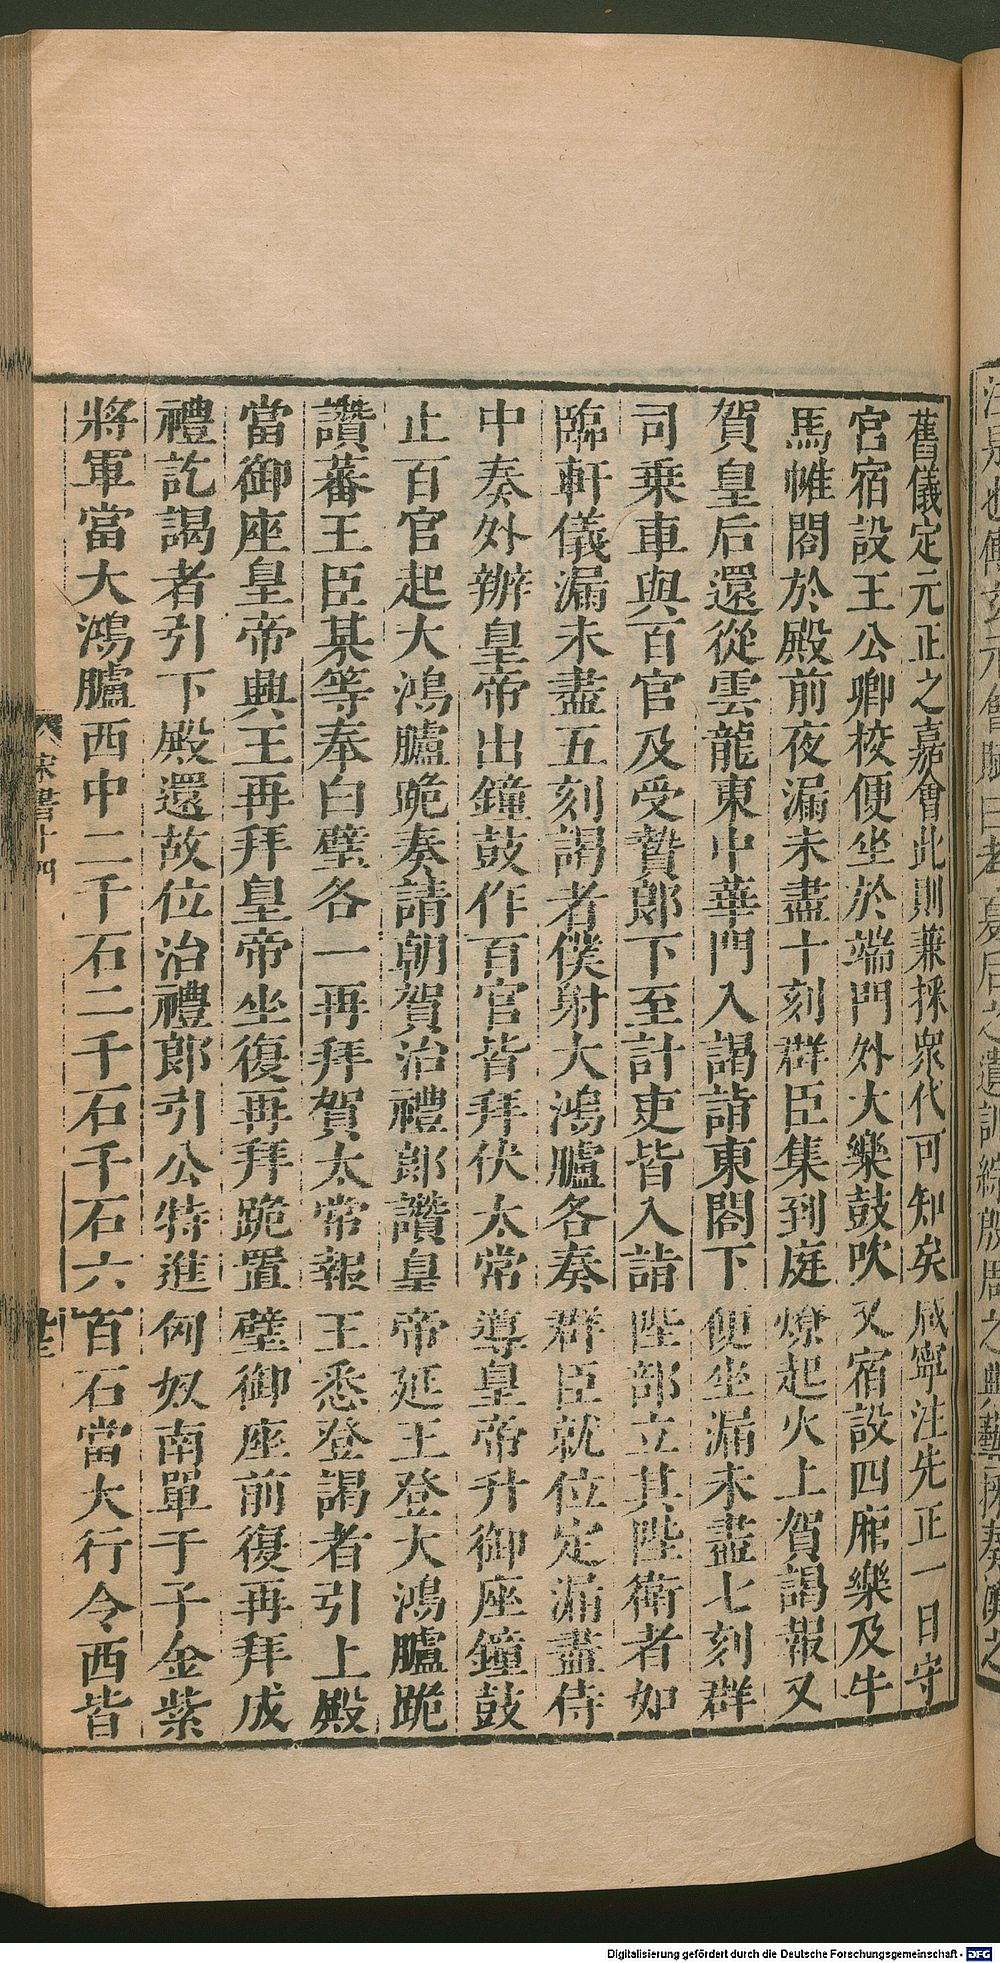 舊儀定元正之嘉會此則兼採衆代可知矣咸寧注先正一日守
宮宿設王公卿校便坐於端門外大樂鼓吹又宿設四廂樂及牛
馬帷閤於殿前夜漏未盡十刻群臣集到庭燎起火上賀謁報又
賀皇后還從雲龍東中華門入謁詣東閤下便坐漏未盡七刻群
司乗車與百官及受贄郎下至計吏皆入詣陛部立其陛衛者如
臨軒儀漏未盡五刻謁者僕射大鴻臚各奏群臣就位定漏盡侍
中奏外辦皇帝出鐘鼓作百官皆拜伏太常導皇帝升御座鐘鼓
止百官起大鴻臚跪奏請朝賀治禮郎讚皇帝延王登大鴻臚跪
讚蕃王臣某等奉白璧各一再拜賀太常報王悉登謁者引上殿
當御座皇帝興王再拜皇帝坐復再拜跪置璧御座前復再拜成
禮訖謁者引下殿還故位治禮郎引公特進匈奴南單于子金紫
將軍當大鴻臚西中二千石二千石千石六百石當大行令西皆
宋書十四
Digitalisierung gefördert durch die Deutsche Forschungsgemeinschaft - DFG